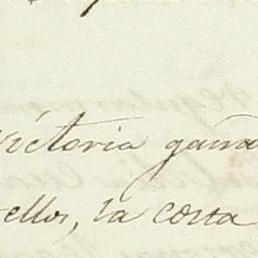 victoria gana
ellos, la costa